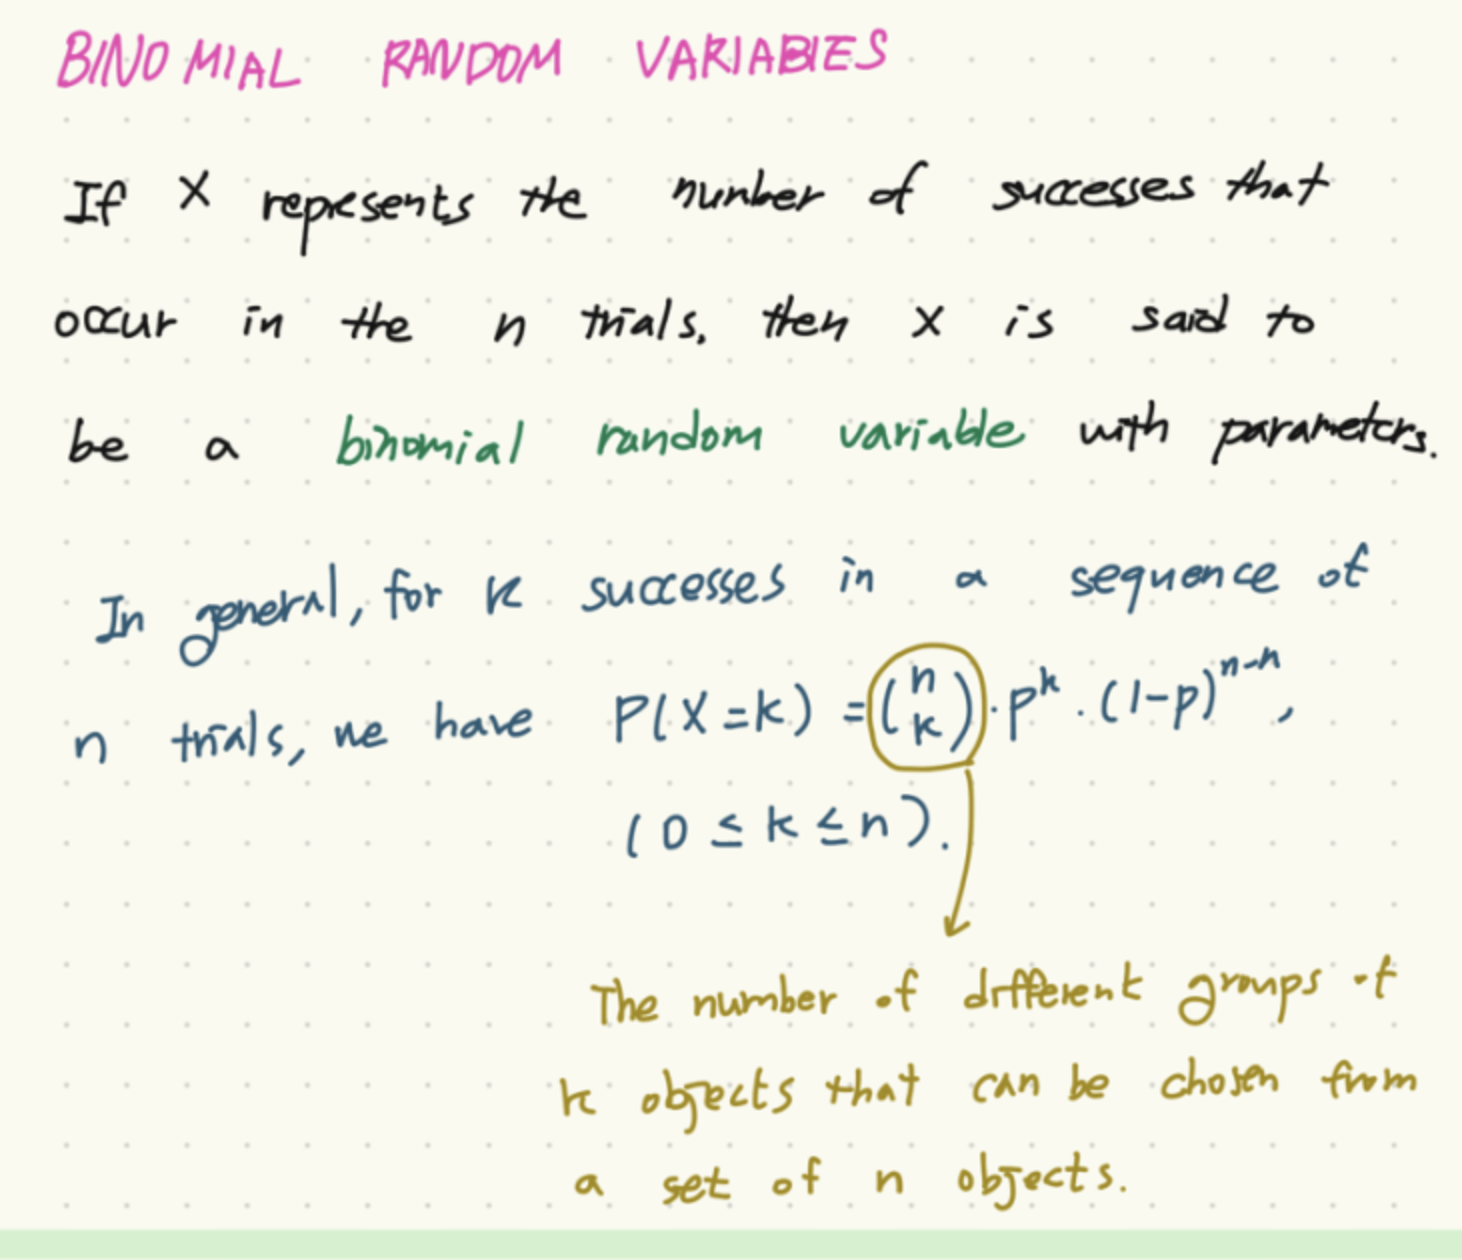 BINOMIAL RANDOM VARIABLES
If X represents the number of success that
occur in the n trials, then X is said to
be a binomial random variable with parameters.
In general, for k successes in a sequence of
n trials, we have P(X=k) = (n k) · p^k · (1-p)^{n-k},
(0 ≤ k ≤ n).
The number of different groups of
k objects that can be chosen from
a set of n objects.